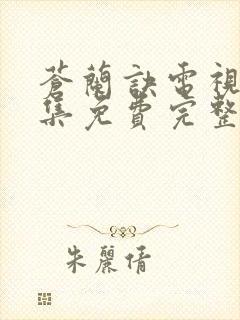 蒼蘭訣電視
集免費完整
朱麗倩